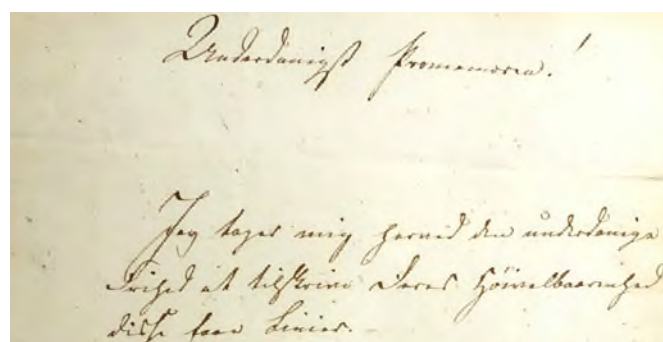 Underdanigst Promemoria!
Jeg tager mig herved den underdanige
Frihed at tilskrive Deres Höivelbaarenhed
disse faae Linier.